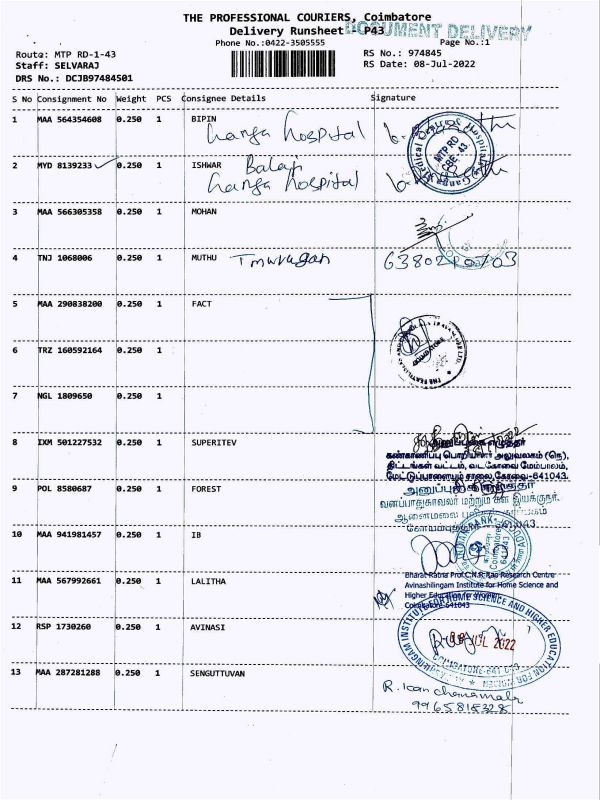 THE PROFESSIONAL COURIERS, Coimbatore
Delivery Runsheet - P43
DOCUMENT DELIVERY
Phone No.:0422-3505555
Page No.:1
Route: MTP RD-1-43
RS No.: 974845
Staff: SELVARAJ
RS Date: 08-Jul-2022
DRS No.: DCJB97484501
S No Consignment No Weight PCS Consignee Details Signature
1 MAA 564354608 0.250 1 BIPIN
Ganga hospital
Medical Centre & Hospitals
MTP RD
CBE 43
2 MYD 8139233 0.250 1 ISHWAR Balaji
Ganga hospital
3 MAA 566305358 0.250 1 MOHAN
4 TNJ 1068006 0.250 1 MUTHU T murugan
5 MAA 290838200 0.250 1 FACT
6 TRZ 160592164 0.250 1
COIMBATORE
7 NGL 1809650 0.250 1
8 IXM 501227532 0.250 1 SUPERITEV
கண்காணிப்பு பொறியாளர் அலுவலகம் (நெ),
திட்டங்கள் வட்டம், வட கோவை மேம்பாலம்,
மேட்டுப்பாளையம் சாலை, கோவை-641043.
9 POL 8580687 0.250 1 FOREST
வனப்பாதுகாவலர் மற்றும் கள இயக்குநர்.
10 MAA 941981457 0.250 1 IB
INDIAN BANK
Coimbatore
641043
11 MAA 567992661 0.250 1 LALITHA
Bharat Ratna Prof.C.N.R.Rao Research Centre
Avinashilingam Institute for Home Science and
Higher Education for Women
Coimbatore-641043
12 RSP 1730260 0.250 1 AVINASI
AVINASHILINGAM INSTITUTE FOR HOME SCIENCE AND HIGHER EDUCATION FOR WOMEN
08 JUL 2022
13 MAA 287281288 0.250 1 SENGUTTUVAN
9965818328